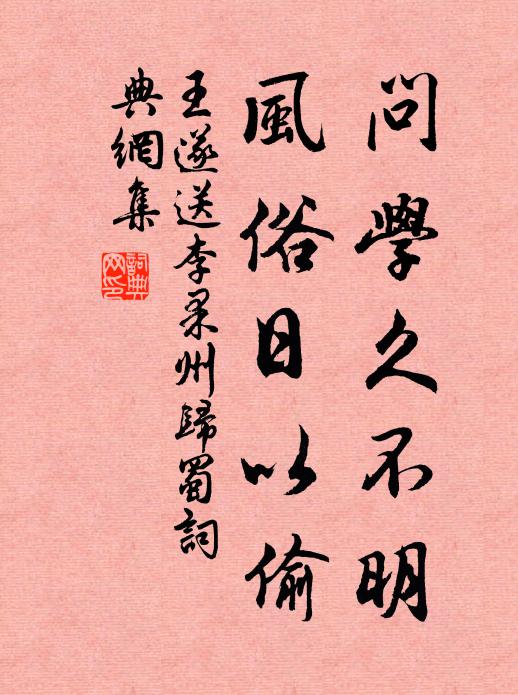 問學久不明
風俗日以偷
王遂送李果州歸蜀詞
典網集
詞典網印